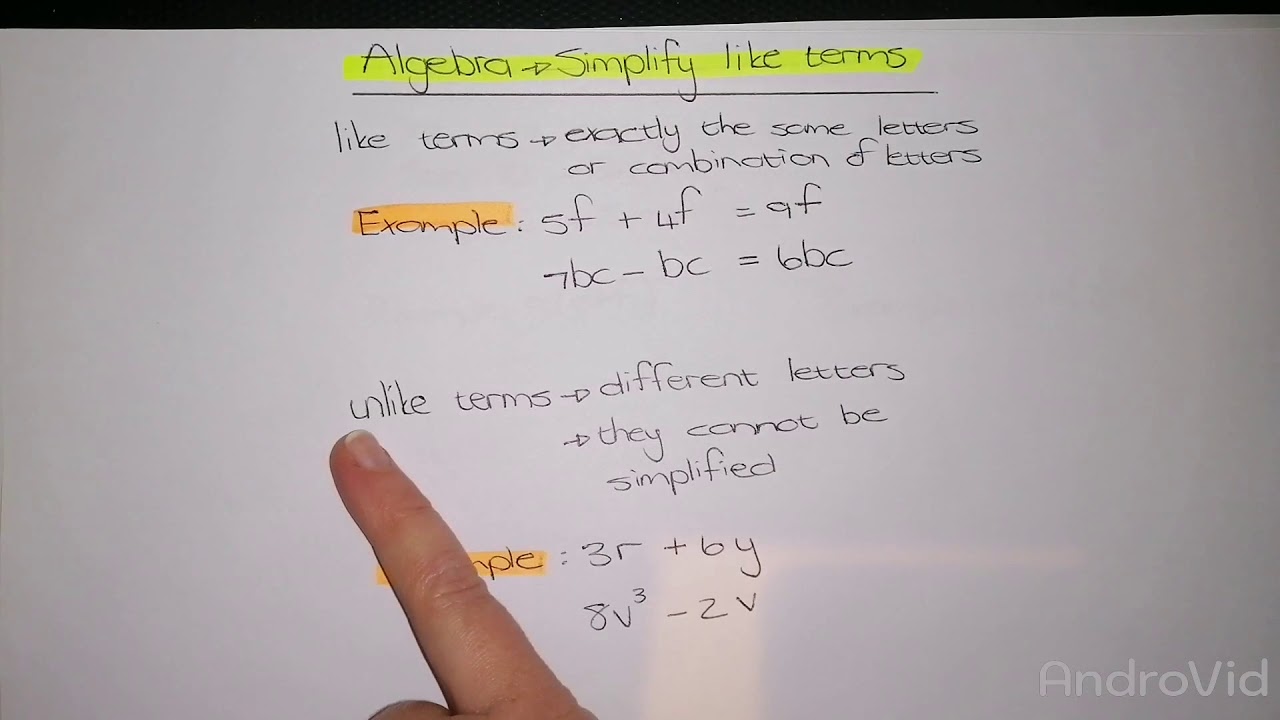 Algebra → Simplify like terms
like terms → exactly the same letters
or combination of letters
Example: 5f + 4f = 9f
7bc - bc = 6bc
unlike terms → different letters
→ they cannot be
simplified
: 3r + 6y
8v³ - 2v
AndroVid